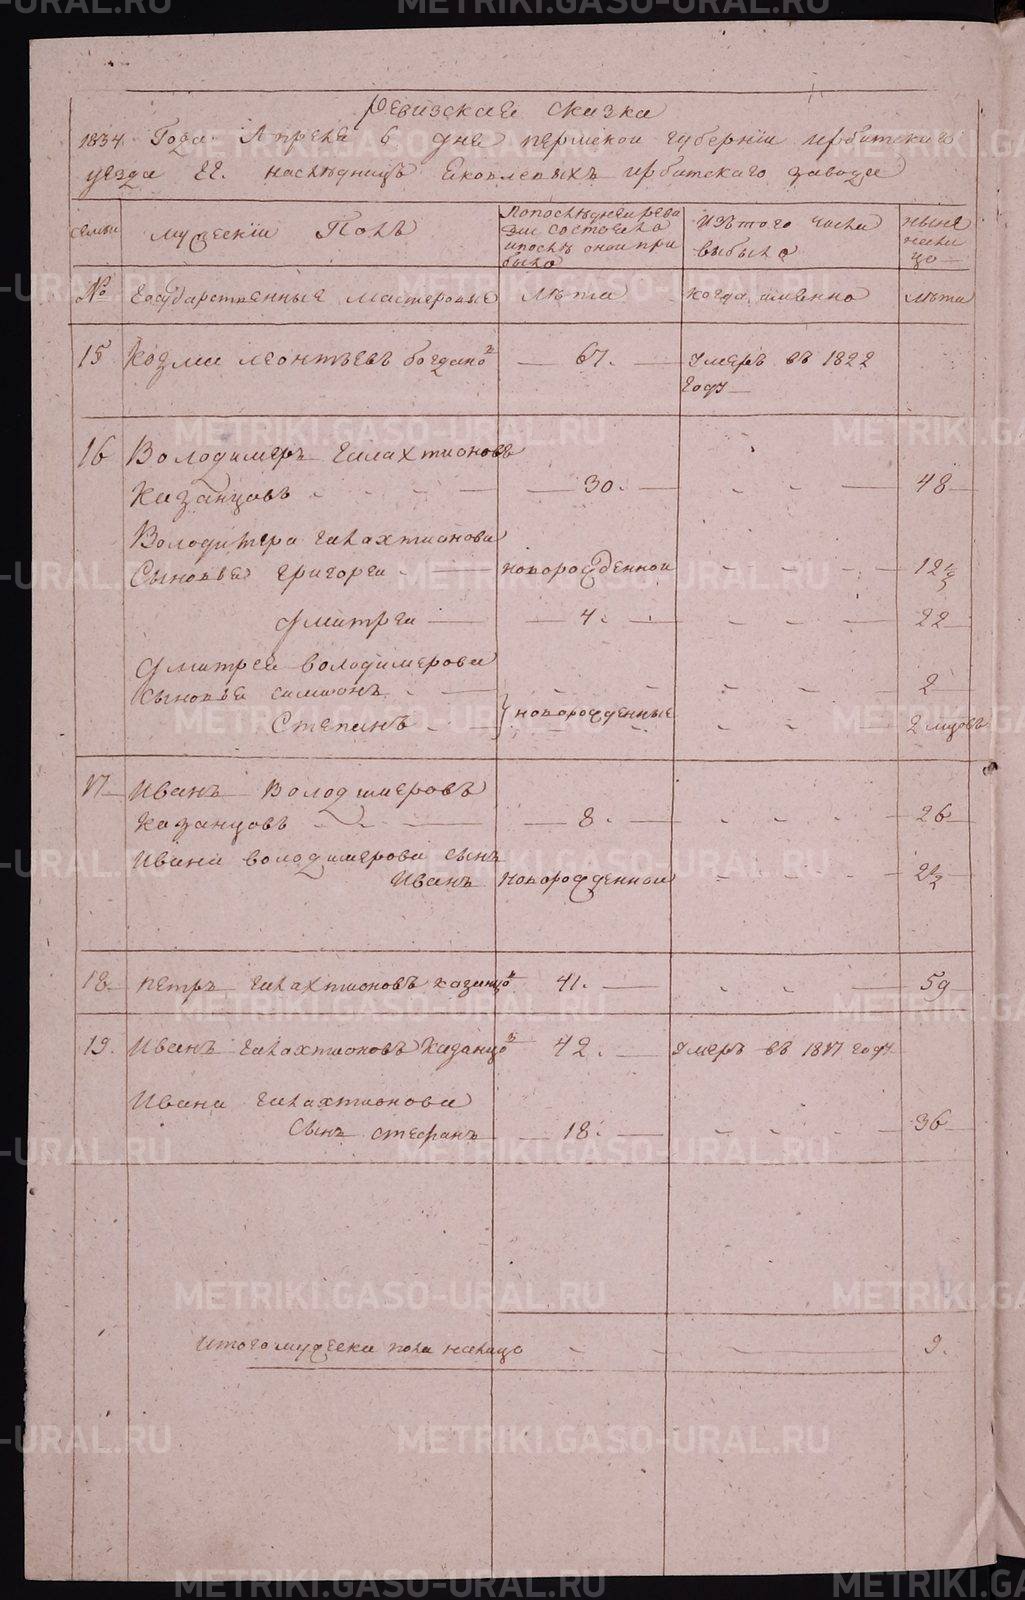 Ревизская сказка
1834 Года Апреля 6 дня пермской губернии ирбитскаго
уезда ГГ. наслѣдницъ Яковлевыхъ ирбитскаго завода
семьи
мужескiй Полъ
По последней реви
зiи состояло
и послѣ оной при
было
Изъ того числа
выбыло
ныне
нали
цо
№
Государственные мастеровые
лѣта
Когда имянно
лѣта
15 Козма леонтьевъ богдано въ — 67. — Умеръ въ 1822
Году —
16 Володимеръ галахтионовъ
Казанцовъ — 30. — 48
Володимера галахтионова
Сыновья григореи — новорожденнои — 12 1/2
Дмитреи — 4. — 22
Дмитрея володимерова
сыновья симионъ — 2
Степанъ — новорожденные — 2 мцовъ
17 Иванъ Володимеровъ
Казанцовъ — 8. — 26
Ивана володимерова сынъ
Иванъ новорожденнои — 2 1/2
18 петръ галахтионовъ казанцовъ 41. — 59
19. Иванъ галахтионовъ Казанцовъ 42. — Умеръ въ 1817 году
Ивана галахтионова
сынъ стефанъ — 18. — 36
Итого мужеска пола налицо — 9.
METRIKI.GASO-URAL.RU